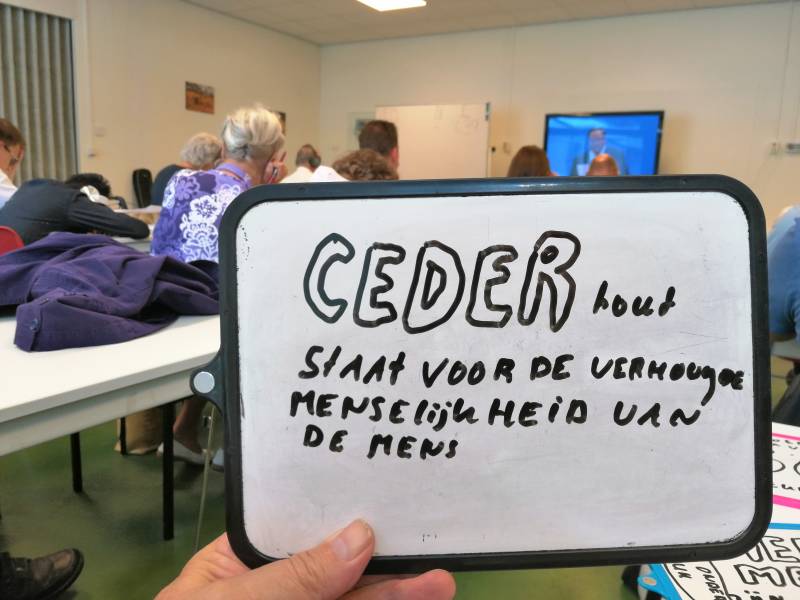 CEDER hout
STAAT VOOR DE VERHOUGDE
MENSELijkHEiD VAN
DE MENS